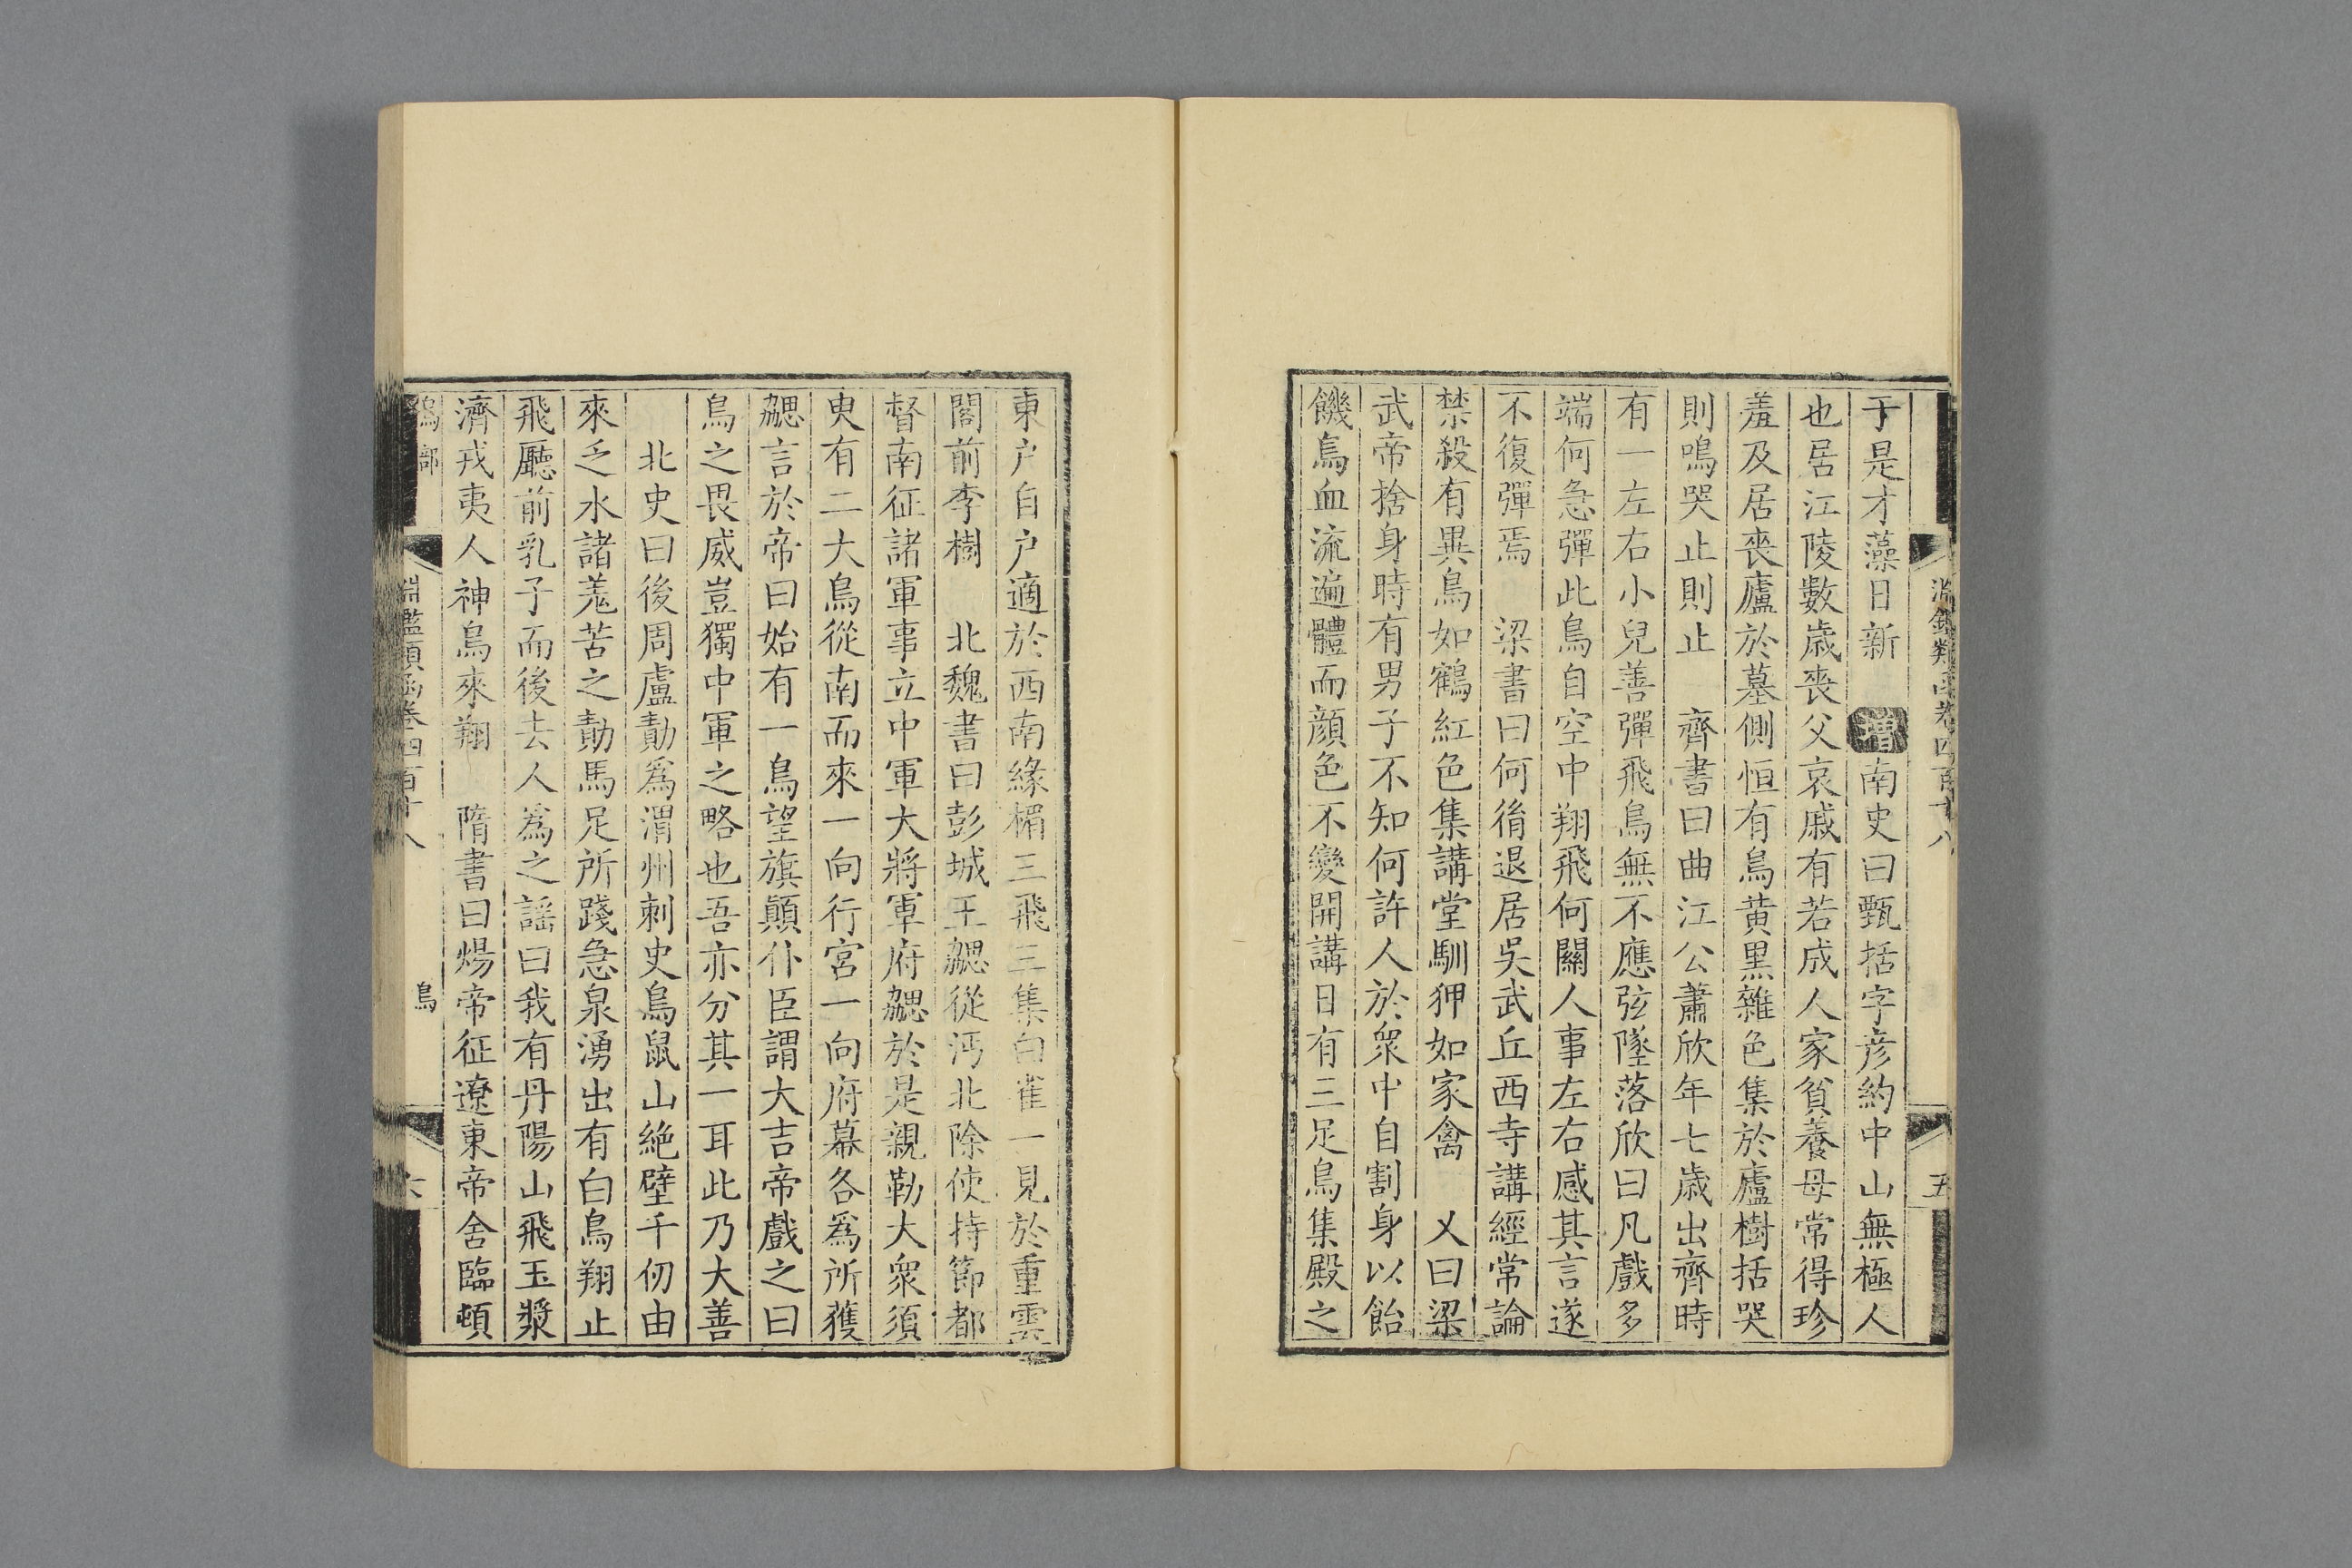 淵鑑類函卷四百十八
五
于是才藻日新 增南史曰甄括字彦約中山無極人
也居江陵數歳喪父哀戚有若成人家貧養母常得珍
羞及居喪廬於墓側恒有鳥黄黒雜色集於廬樹括哭
則鳴哭止則止 齊書曰曲江公蕭欣年七歳出齊時
有一左右小兒善彈飛鳥無不應弦墜落欣曰凡戲多
端何急彈此鳥自空中翔飛何關人事左右感其言遂
不復彈焉 梁書曰何㣲退居吳武丘西寺講經常論
禁殺有異鳥如鶴紅色集講堂馴狎如家禽 又曰梁
武帝捨身時有男子不知何許人於衆中自割身以飴
饑鳥血流遍體而顔色不變開講日有三足鳥集殿之
東户自户適於西南縁楣三飛三集白雀一見於重雲
閣前李樹 北魏書曰彭城王勰從沔北除使持節都
督南征諸軍事立中軍大將軍府勰於是親勒大衆須
臾有二大鳥從南而來一向行宮一向府幕各爲所獲
勰言於帝曰始有一鳥望旗顚仆臣謂大吉帝戲之曰
鳥之畏威豈獨中軍之略也吾亦分其一耳此乃大善
北史曰後周盧勣爲渭州刺史鳥鼠山絶壁千仞由
來乏水諸羗苦之勣馬足所踐急泉湧出有白鳥翔止
飛廳前乳子而後去人爲之謡曰我有丹陽山飛玉漿
濟戎夷人神鳥來翔 隋書曰煬帝征遼東帝舍臨頓
鳥部
淵鑑類函卷四百十八
鳥
六